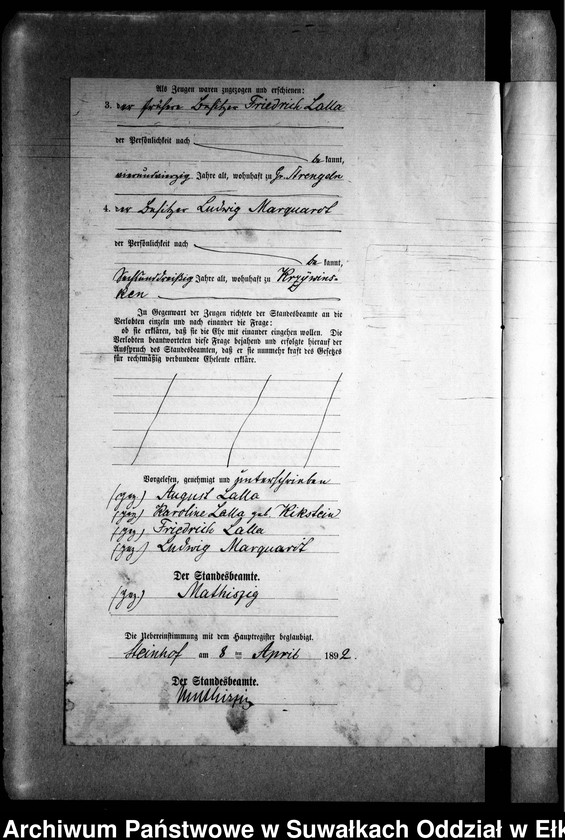 Als Zeugen waren zugezogen und erschienen:
3. der frühere Besitzer Friedrich Lalla
der Persönlichkeit nach
bekannt,
Jahre alt, wohnhaft zu Gr. Strengeln
4. der Besitzer Ludwig Marquardt
der Persönlichkeit nach
bekannt,
Sechsunddreißig Jahre alt, wohnhaft zu Krzywins-
ken
In Gegenwart der Zeugen richtete der Standesbeamte an die
Verlobten einzeln und nach einander die Frage:
ob sie erklären, daß sie die Ehe mit einander eingehen wollen. Die
Verlobten beantworteten diese Frage bejahend und erfolgte hierauf der
Ausspruch des Standesbeamten, daß er sie nunmehr kraft des Gesetzes
für rechtmäßig verbundene Eheleute erkläre.
Vorgelesen, genehmigt und unterschrieben
(gez.) August Lalla
(gez.) Karoline Lalla geb. Rikstein
(gez.) Friedrich Lalla
(gez.) Ludwig Marquardt
Der Standesbeamte.
(gez.) Mathiszig
Die Uebereinstimmung mit dem Hauptregister beglaubigt.
Steinhof am 8 ten April 1892.
Der Standesbeamte.
Mathiszig
Archiwum Państwowe w Suwałkach Oddział w Ełk